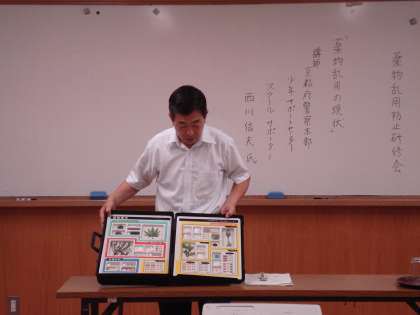 薬物乱用防止研修会
"薬物乱用の現状"
講師 京都府警察本部
少年サポートセンター
スクールサポーター
西川 信夫 氏